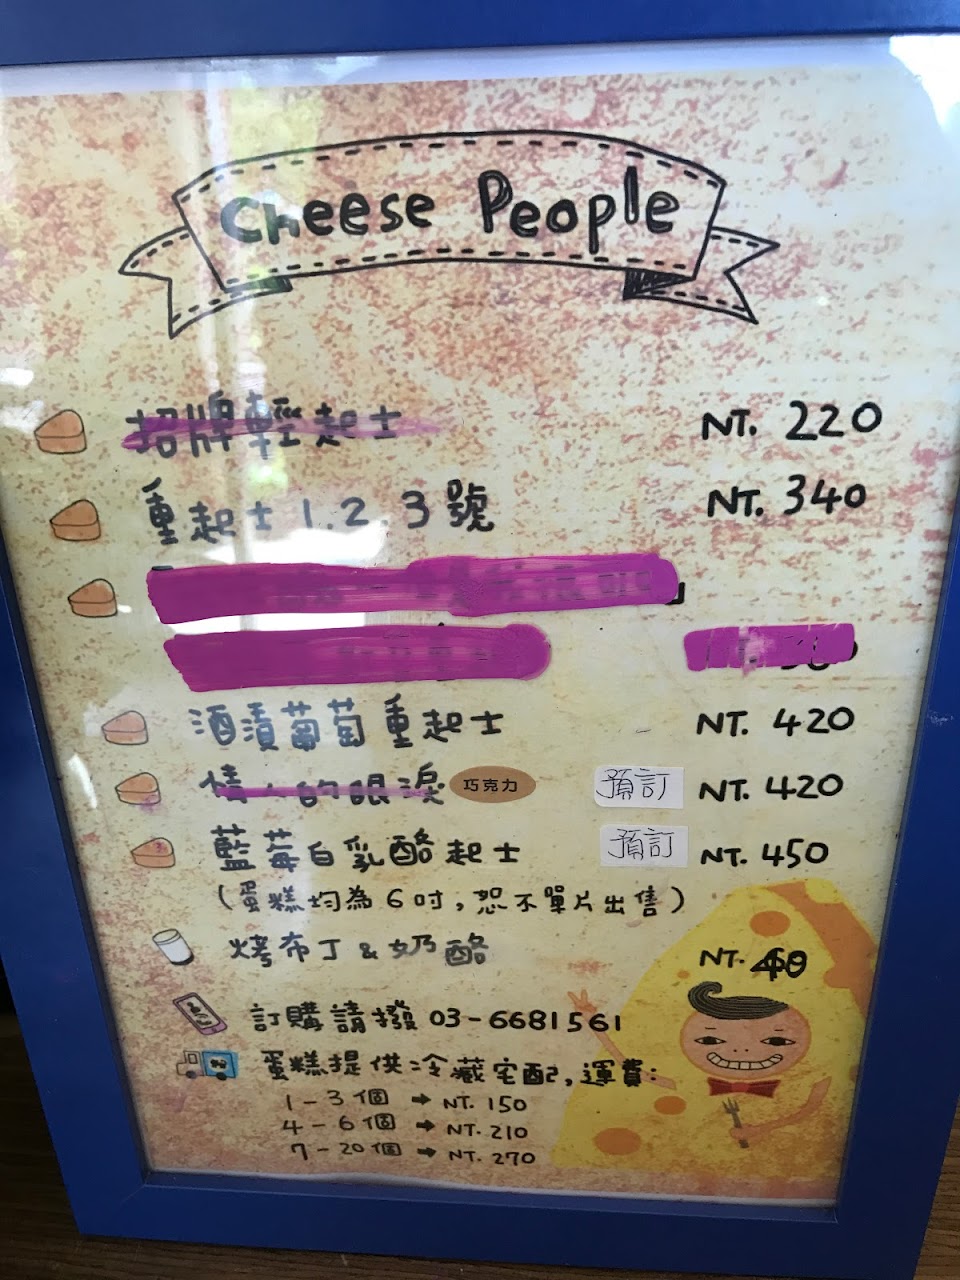 Cheese People
招牌輕起士 NT. 220
重起士 1.2.3號 NT. 340
酒漬葡萄重起士 NT. 420
情人的眼淚 巧克力 預訂 NT. 420
藍莓白乳酪起士 預訂 NT. 450
(蛋糕均為6吋,恕不單片出售)
烤布丁&奶酪 NT.
訂購請撥 03-6681561
蛋糕提供冷藏宅配,運費:
1-3個 → NT. 150
4-6個 → NT. 210
7-20個 → NT. 270